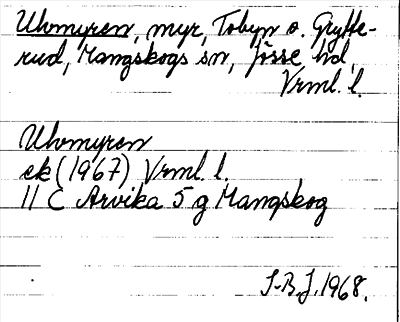 Uvmyren, myr, Tobyn o. Grytte-
rud, Mangskogs sn, Jösse hd,
Vrml. l.
Uvmyren
ek (1967) Vrml. l.
11 C Arvika 5 g Mangskog
S-B.J. 1968.